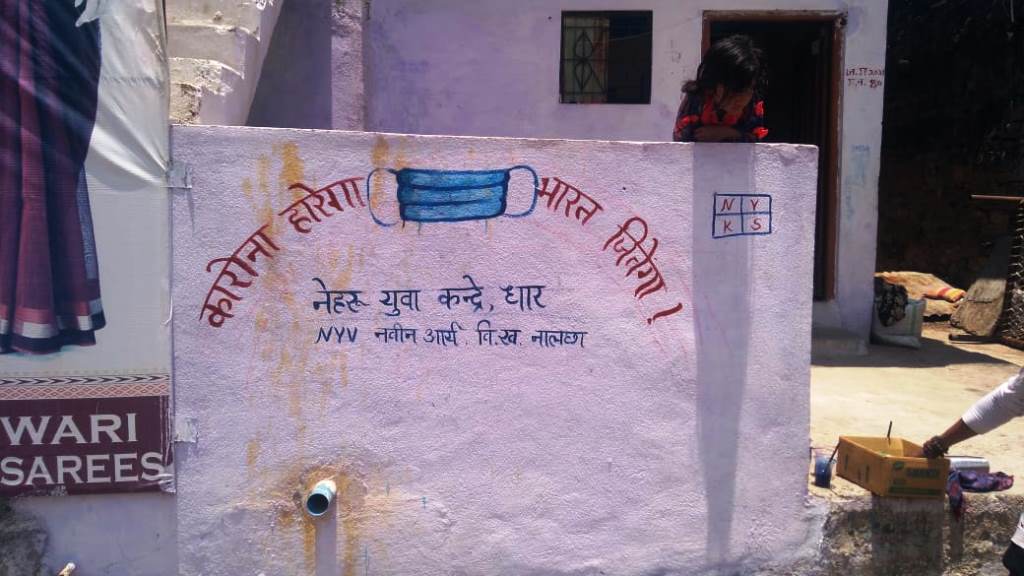 कारोना हारेगा भारत जितेगा !
N Y
K S
नेहरू युवा कन्द्रे, धार
NYV नवीन आर्य. वि.ख. नालछा
WARI
SAREES